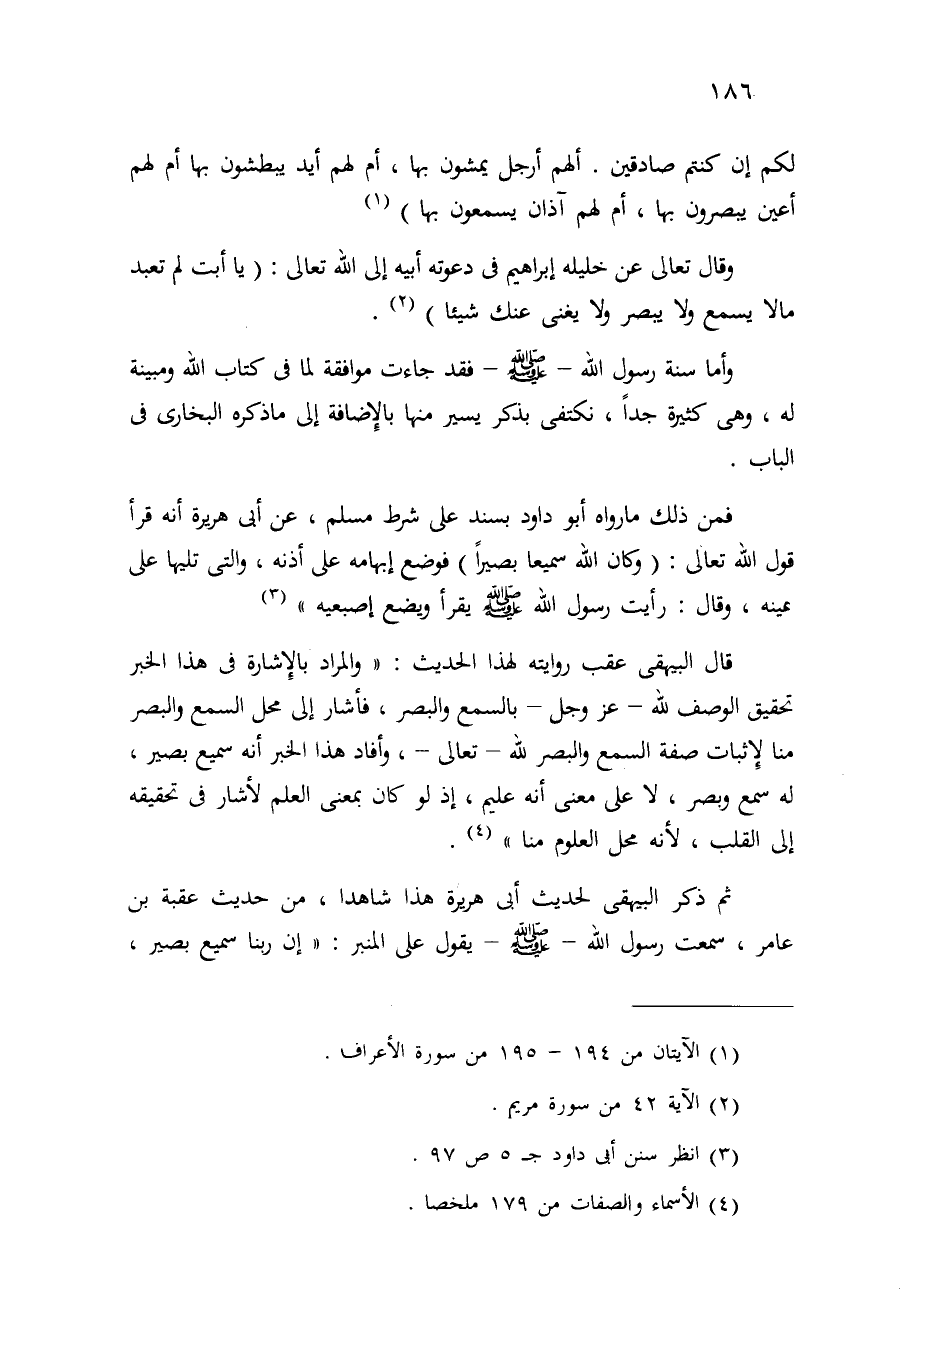 ١٨٦
لكم إن كنتم صادقين . ألهم أرجل يمشون بها ، أم لهم أيد يبطشون بها أم لهم
أعين يبصرون بها ، أم لهم آذان يسمعون بها ) (١)
وقال تعالى عن خليله إبراهيم فى دعوته أبيه إلى الله تعالى : ( يا أبت لم تعبد
مالا يسمع ولا يبصر ولا يغنى عنك شيئا ) (٢) .
وأما سنة رسول الله – ﷺ – فقد جاءت موافقة لما فى كتاب الله ومبينة
له ، وهى كثيرة جداً ، نكتفى بذكر يسير منها بالإضافة إلى ماذكره البخارى فى
الباب .
فمن ذلك مارواه أبو داود بسند على شرط مسلم ، عن أبى هريرة أنه قرأ
قول الله تعالى : ( وكان الله سميعا بصيراً ) فوضع إبهامه على أذنه ، والتى تليها على
عينه ، وقال : رأيت رسول الله ﷺ يقرأ ويضع إصبعيه » (٣)
قال البيهقى عقب روايته لهذا الحديث : « والمراد بالإشارة فى هذا الخبر
تحقيق الوصف لله – عز وجل – بالسمع والبصر ، فأشار إلى محل السمع والبصر
منا لإثبات صفة السمع والبصر لله – تعالى – ، وأفاد هذا الخبر أنه سميع بصير ،
له سمع وبصر ، لا على معنى أنه عليم ، إذ لو كان بمعنى العلم لأشار فى تحقيقه
إلى القلب ، لأنه محل العلوم منا » (٤) .
ثم ذكر البيهقى لحديث أبى هريرة هذا شاهدا ، من حديث عقبة بن
عامر ، سمعت رسول الله – ﷺ – يقول على المنبر : « إن ربنا سميع بصير ،
(١) الآيتان من ١٩٤ – ١٩٥ من سورة الأعراف .
(٢) الآية ٤٢ من سورة مريم .
(٣) انظر سنن أبى داود جـ ٥ ص ٩٧ .
(٤) الأسماء والصفات من ١٧٩ ملخصا .